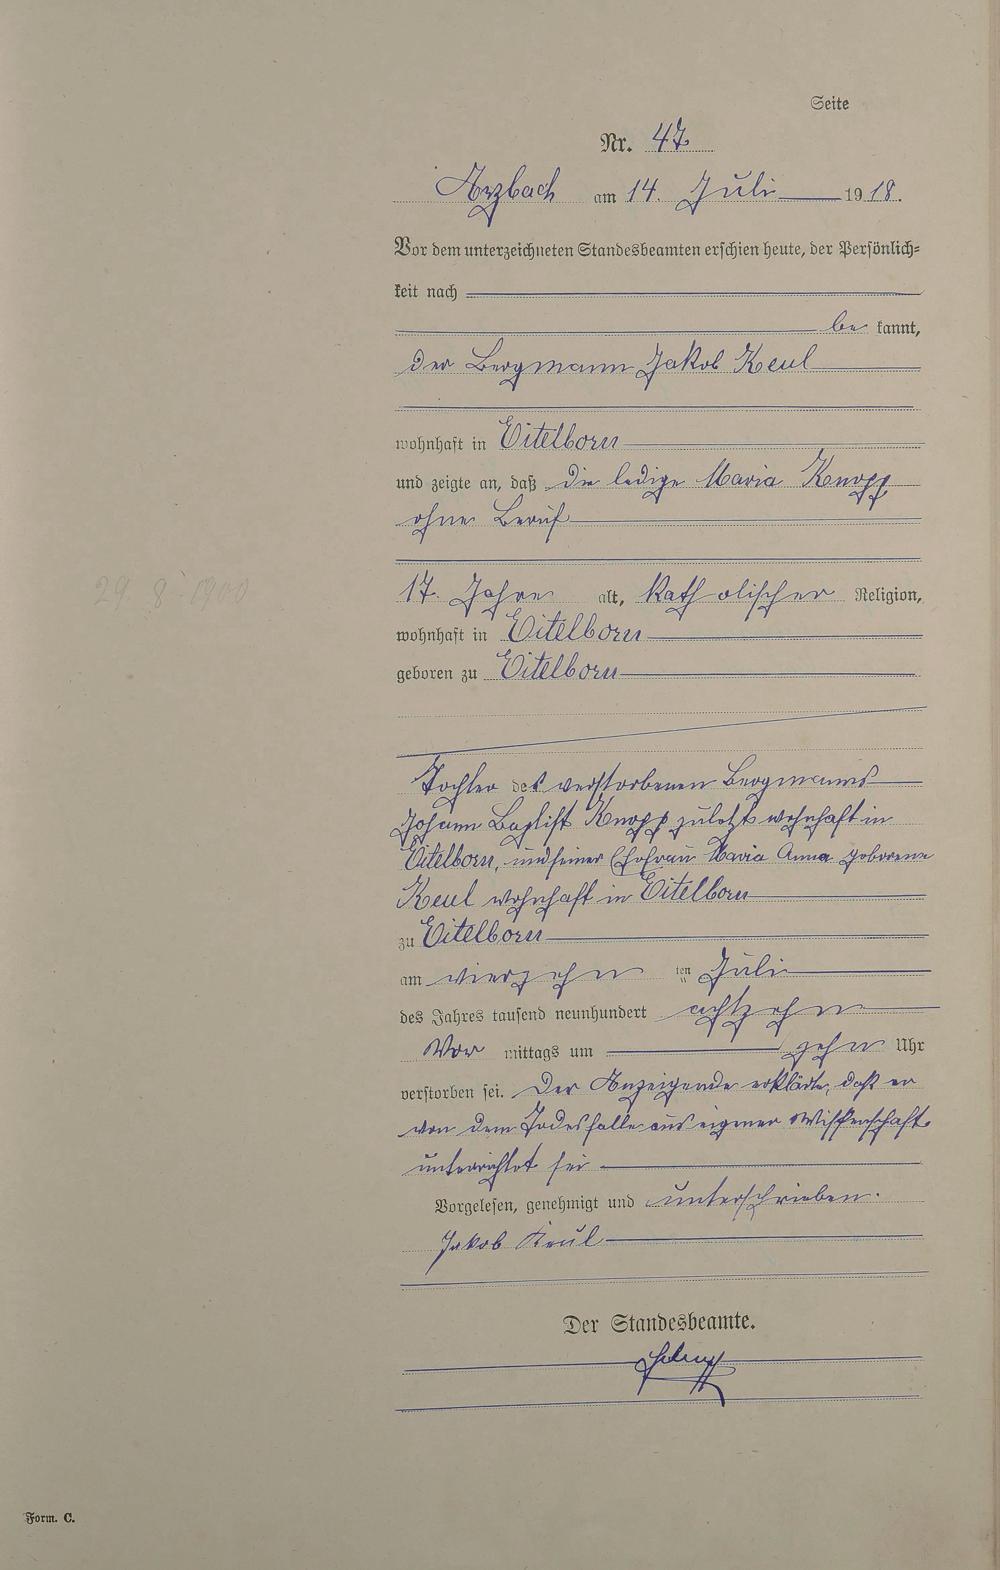 Seite
Nr. 47
Arzbach am 14. Juli 1918.
Vor dem unterzeichneten Standesbeamten erschien heute, der Persönlich=
keit nach
be kannt,
der Bergmann Jakob Keul
wohnhaft in Eitelborn
und zeigte an, daß die ledige Maria Knopp
ohne Beruf
29. 8. 1900
17 Jahre alt, katholischer Religion,
wohnhaft in Eitelborn
geboren zu Eitelborn
Tochter des verstorbenen Bergmanns
Johann Baptist Knopp zuletzt wohnhaft in
Eitelborn, und seiner Ehefrau Maria Anna geborene
Keul wohnhaft in Eitelborn
zu Eitelborn
am vierzehn ten Juli
des Jahres tausend neunhundert achtzehn
Vor mittags um zehn Uhr
verstorben sei. Der Anzeigende erklärte, daß er
von dem Todesfalle aus eigener Wissenschaft
unterrichtet sei
Vorgelesen, genehmigt und unterschrieben.
Jakob Keul
Der Standesbeamte.
Form. C.